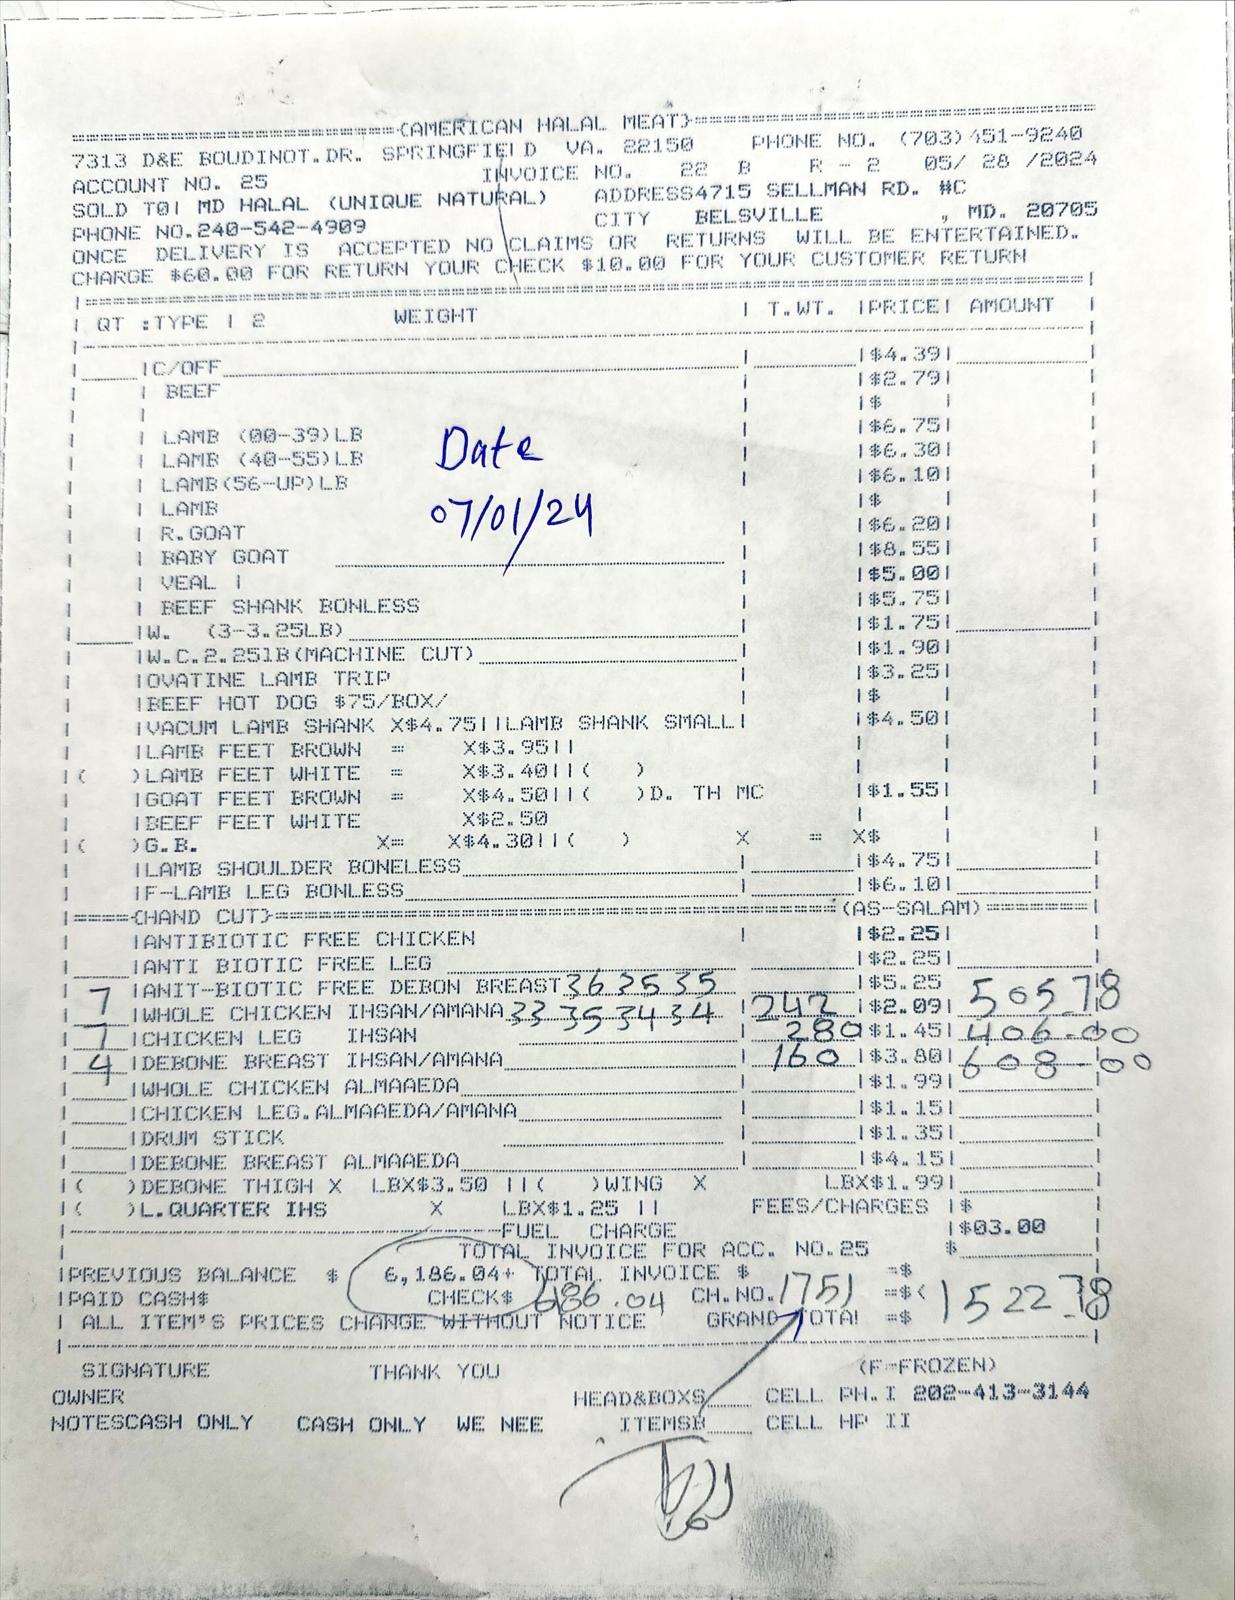 ========================{AMERICAN HALAL MEAT}==============================
7313 D&E BOUDINOT.DR. SPRINGFIELD VA. 22150 PHONE NO. (703)451-9240
ACCOUNT NO. 25 INVOICE NO. 22 B R - 2 05/ 28 /2024
SOLD TO| MD HALAL (UNIQUE NATURAL) ADDRESS4715 SELLMAN RD. #C
PHONE NO.240-542-4909 CITY BELSVILLE , MD. 20705
ONCE DELIVERY IS ACCEPTED NO CLAIMS OR RETURNS WILL BE ENTERTAINED.
CHARGE $60.00 FOR RETURN YOUR CHECK $10.00 FOR YOUR CUSTOMER RETURN
| QT :TYPE | 2 WEIGHT | T.WT. |PRICE| AMOUNT |
|C/OFF |$4.39|
| BEEF |$2.79|
| |$ |
| LAMB (00-39)LB |$6.75|
| LAMB (40-55)LB |$6.30|
| LAMB(56-UP)LB |$6.10|
| LAMB |$ |
| R.GOAT |$6.20|
| BABY GOAT |$8.55|
| VEAL | |$5.00|
| BEEF SHANK BONLESS |$5.75|
Date
07/01/24
|W. (3-3.25LB) |$1.75|
|W.C.2.25lB(MACHINE CUT) |$1.90|
|OVATINE LAMB TRIP |$3.25|
|BEEF HOT DOG $75/BOX/ |$ |
|VACUM LAMB SHANK X$4.75||LAMB SHANK SMALL| |$4.50|
|LAMB FEET BROWN = X$3.95||
|( )LAMB FEET WHITE = X$3.40||( )
|GOAT FEET BROWN = X$4.50||( )D. TH MC |$1.55|
|BEEF FEET WHITE X$2.50
|( )G.B. X= X$4.30||( ) X = X$
|LAMB SHOULDER BONELESS |$4.75|
|F-LAMB LEG BONLESS |$6.10|
|===={HAND CUT}========================================(AS-SALAM)=======|
|ANTIBIOTIC FREE CHICKEN |$2.25|
|ANTI BIOTIC FREE LEG |$2.25|
|ANIT-BIOTIC FREE DEBON BREAST 36 35 35 |$5.25
7 |WHOLE CHICKEN IHSAN/AMANA 33 35 34 34 | 242 |$2.09| 505.78
7 |CHICKEN LEG IHSAN 280 $1.45| 406.00
4 |DEBONE BREAST IHSAN/AMANA | 160 |$3.80| 608-00
|WHOLE CHICKEN ALMAAEDA |$1.99|
|CHICKEN LEG.ALMAAEDA/AMANA |$1.15|
|DRUM STICK |$1.35|
|DEBONE BREAST ALMAAEDA |$4.15|
|( )DEBONE THIGH X LBX$3.50 ||( )WING X LBX$1.99|
|( )L.QUARTER IHS X LBX$1.25 || FEES/CHARGES |$
FUEL CHARGE |$03.00
TOTAL INVOICE FOR ACC. NO.25 $
|PREVIOUS BALANCE $ 6,186.04+ TOTAL INVOICE $ =$
|PAID CASH$ CHECK$ 6186.04 CH.NO. 1751 =$< 1522.78
| ALL ITEM'S PRICES CHANGE WITHOUT NOTICE GRAND TOTAL =$
SIGNATURE THANK YOU (F-FROZEN)
OWNER HEAD&BOXS CELL PH.I 202-413-3144
NOTESCASH ONLY CASH ONLY WE NEE ITEMSB CELL HP II